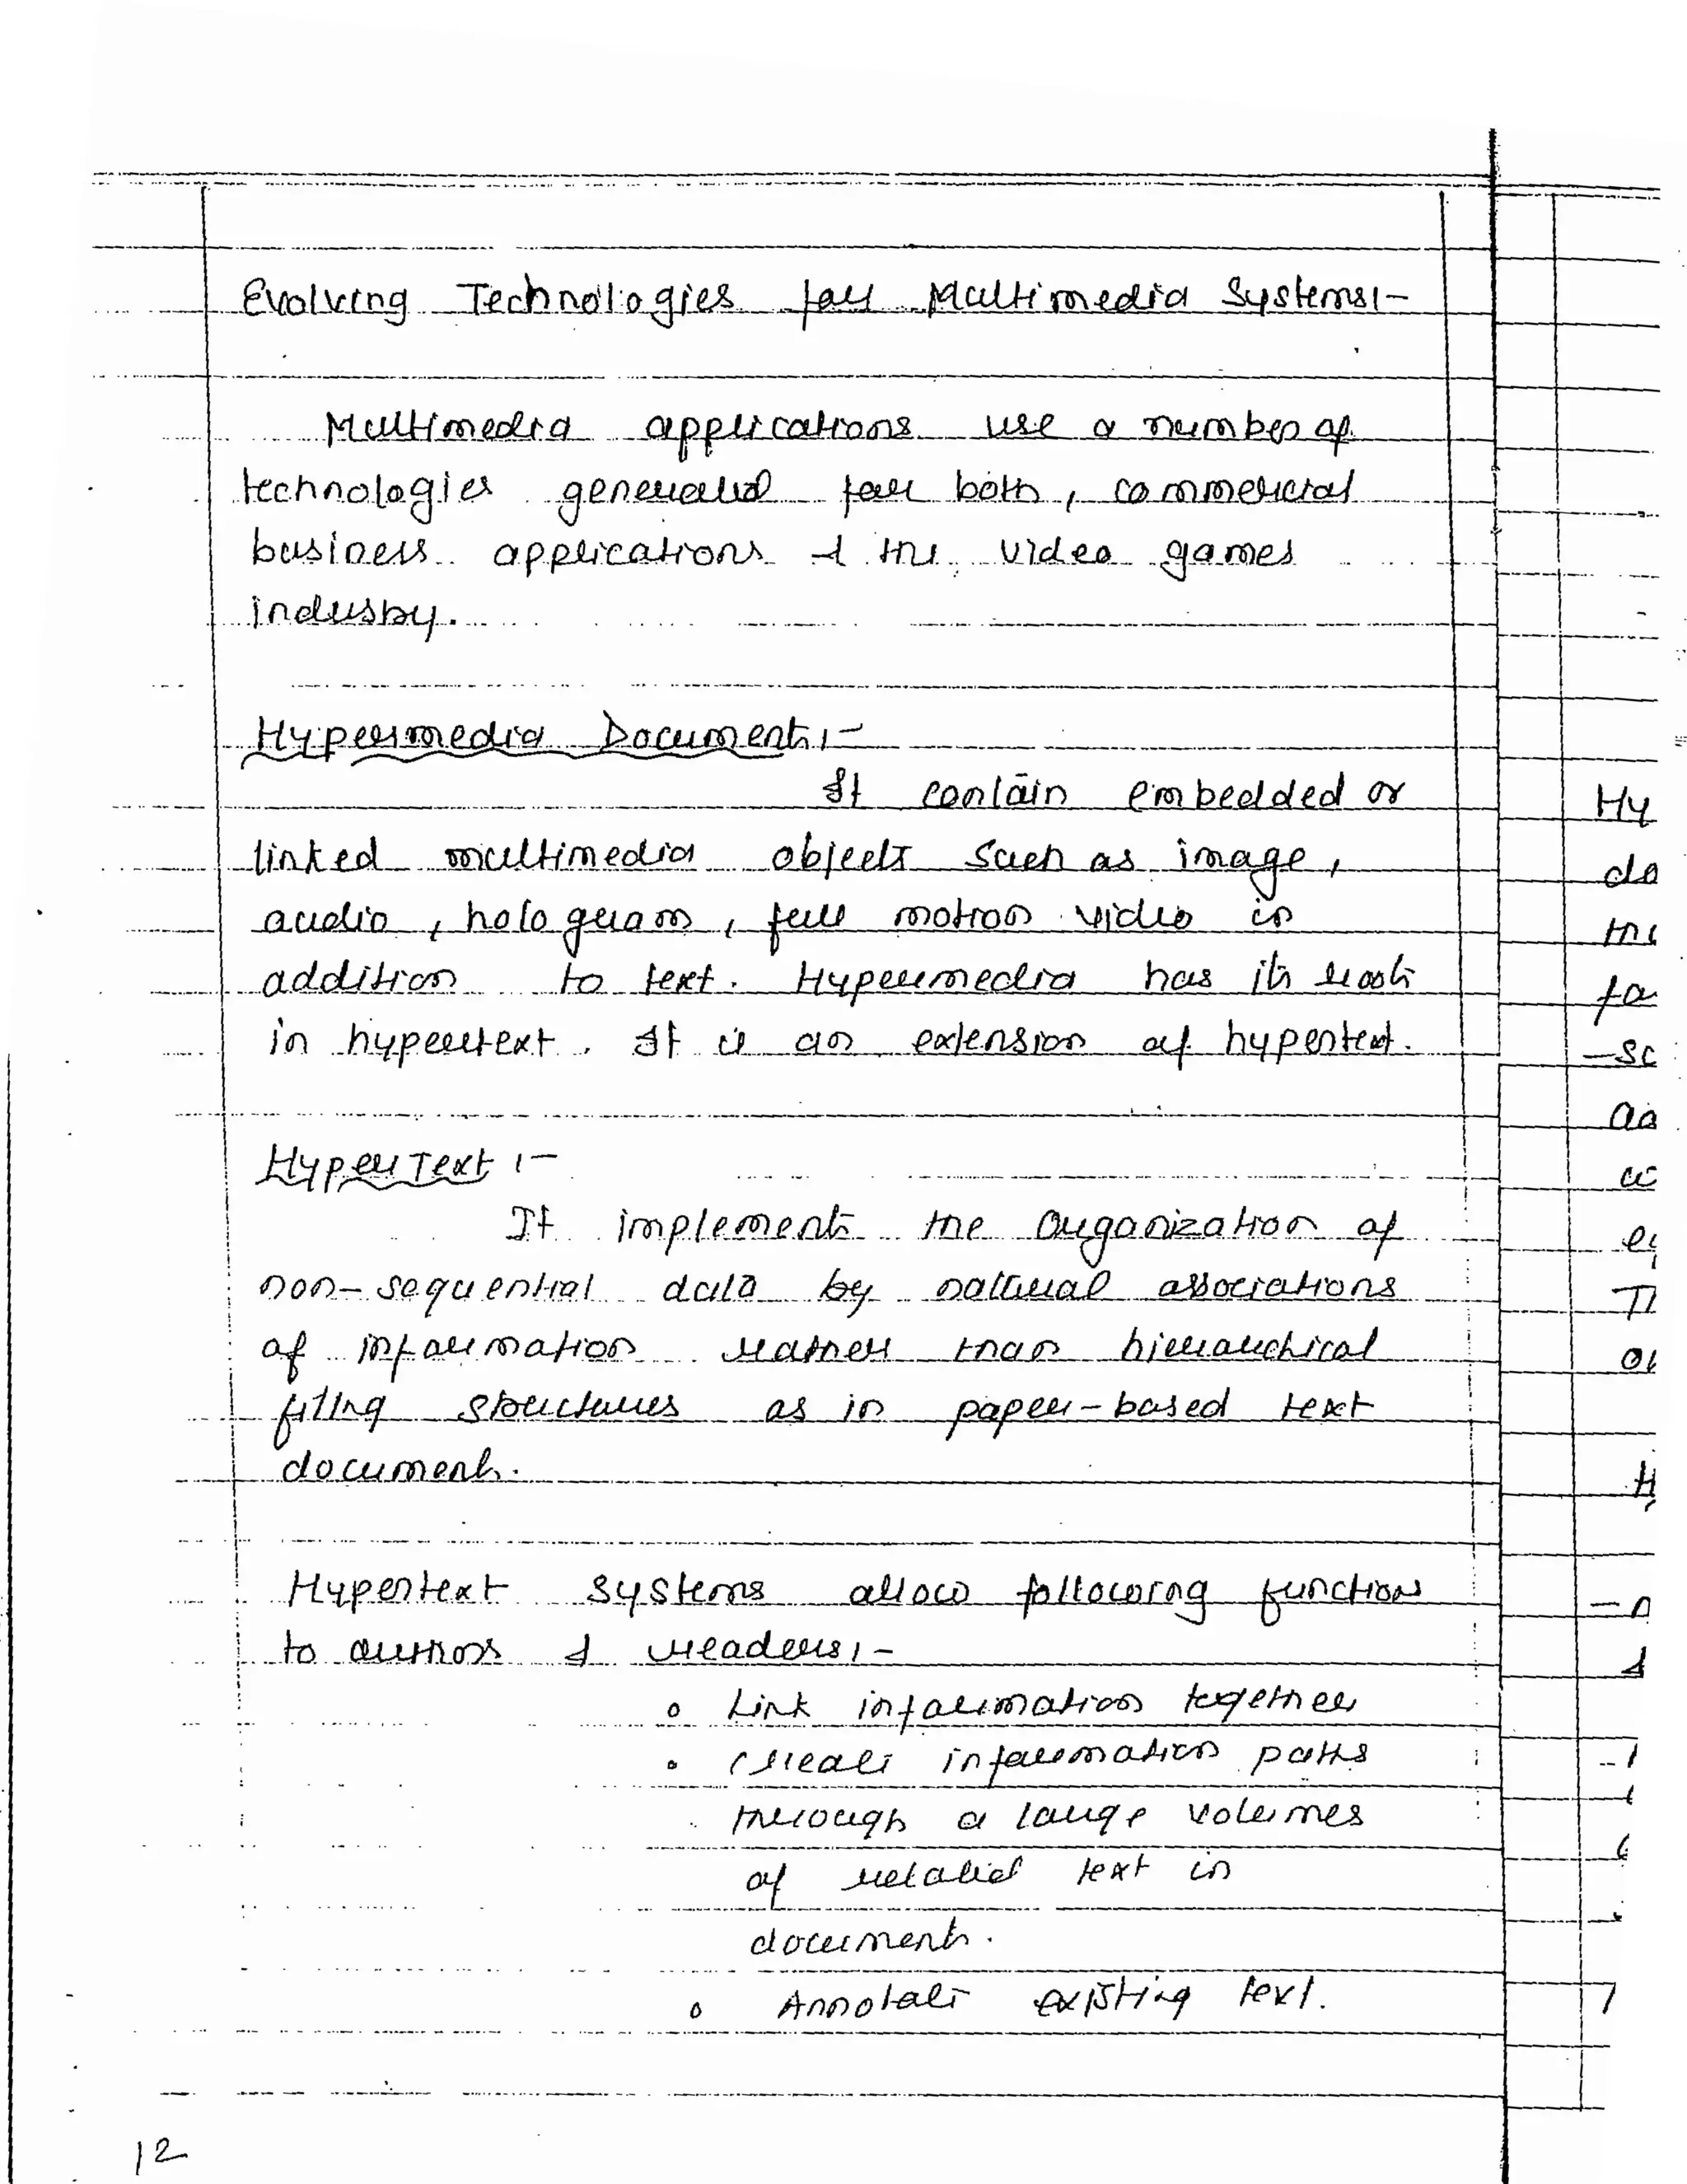 Evolving Technologies for Multimedia Systems:-
Multimedia applications use a number of
technologies generated for both, commercial
business applications & the video games
industry.
Hypermedia Documents:-
It contain embedded or
linked multimedia objects such as image,
audio, hologram, full motion video in
addition to text. Hypermedia has its roots
in hypertext. It is an extension of hypertext.
HyperText:-
It implements the organization of
non-sequential data by natural associations
of information rather than hierarchical
filing structures as in paper-based text
documents.
Hypertext systems allow following functions
to authors & readers:-
o Link information together
o Create information paths
through a large volumes
of related text in
documents.
o Annotate existing text.
12
Hy
do
fa
-sc